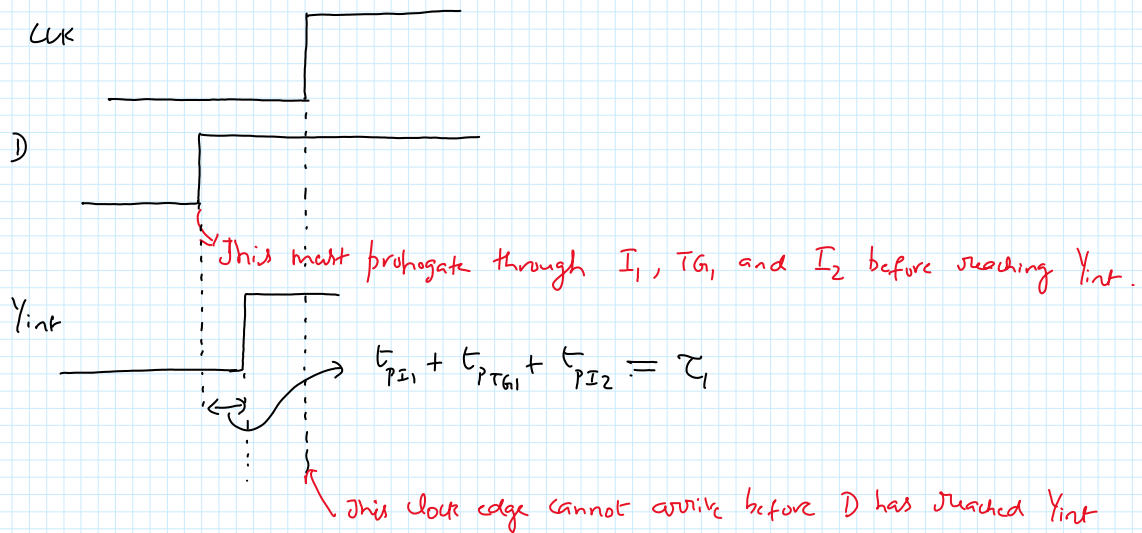 CLK
D
This must propogate through I₁, TG₁ and I₂ before reaching Yint.
Yint
tpI₁ + tpTG₁ + tpI₂ = τ₁
This clock edge cannot arrive before D has reached Yint